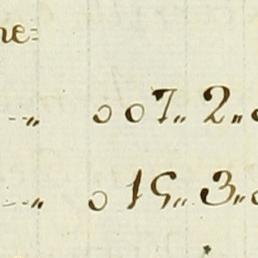 ne=
--„ 007„ 2„
--„ 015„ 3„